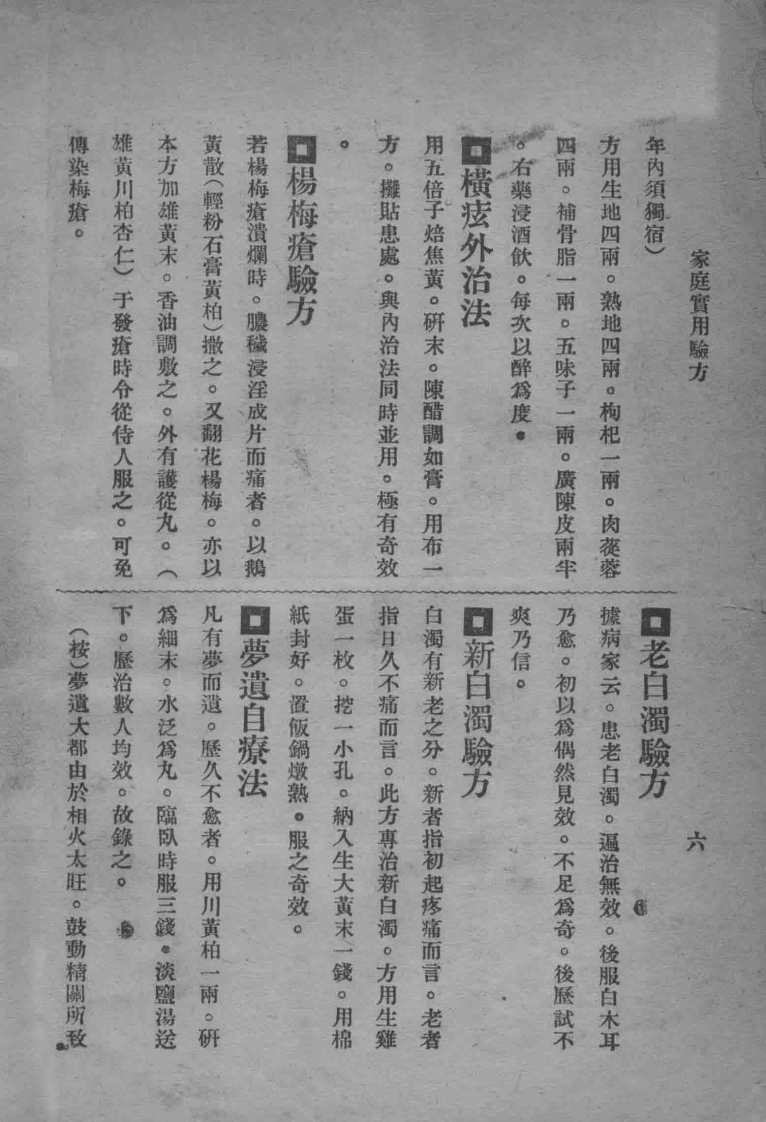 家庭實用驗方
六
年內須獨宿）
方用生地四兩。熟地四兩。枸杞一兩。肉蓯蓉
四兩。補骨脂一兩。五味子一兩。廣陳皮兩半
。右藥浸酒飲。每次以醉爲度。
橫痃外治法
用五倍子焙焦黃。研末。陳醋調如膏。用布一
方。攤貼患處。與內治法同時並用。極有奇效
。
楊梅瘡驗方
若楊梅瘡潰爛時。膿穢浸淫成片而痛者。以鵝
黃散（輕粉石膏黃柏）撒之。又翻花楊梅。亦以
本方加雄黃末。香油調敷之。外有護從丸。（
雄黃川柏杏仁）于發瘡時令從侍人服之。可免
傳染梅瘡。
老白濁驗方
據病家云。患老白濁。遍治無效。後服白木耳
乃愈。初以爲偶然見效。不足爲奇。後歷試不
爽乃信。
新白濁驗方
白濁有新老之分。新者指初起疼痛而言。老者
指日久不痛而言。此方專治新白濁。方用生雞
蛋一枚。挖一小孔。納入生大黃末一錢。用棉
紙封好。置飯鍋燉熟。服之奇效。
夢遺自療法
凡有夢而遺。歷久不愈者。用川黃柏一兩。研
爲細末。水泛爲丸。臨臥時服三錢。淡鹽湯送
下。歷治數人均效。故錄之。
（按）夢遺大都由於相火太旺。鼓動精關所致